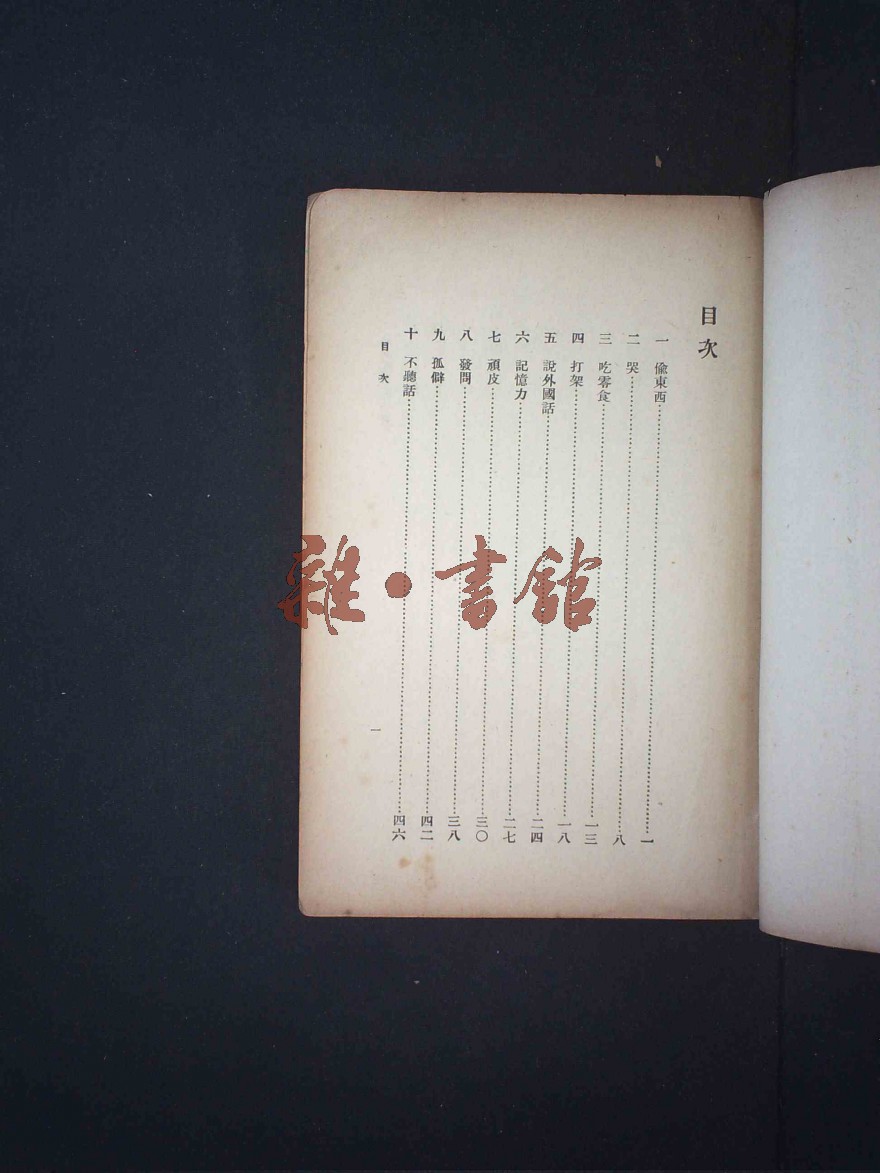 目次
一 偸東西⋯⋯一
二 哭⋯⋯八
三 吃零食⋯⋯一三
四 打架⋯⋯一八
五 說外國話⋯⋯二四
六 記憶力⋯⋯二七
七 頑皮⋯⋯三〇
八 發問⋯⋯三八
九 孤僻⋯⋯四二
十 不聽話⋯⋯四六
目次
一
雜·書館